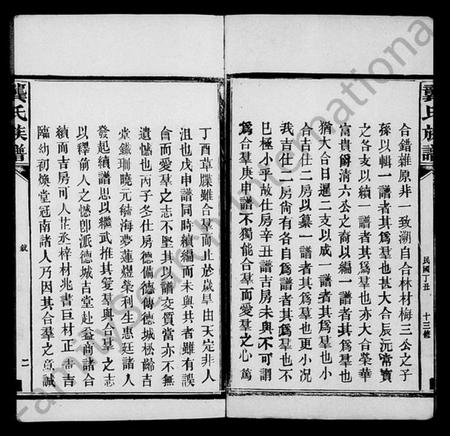 龔氏族譜
民國丁丑
十三修
合錯雜原非一致溯自合林材梅三公之子
孫以輯一譜者其爲羣也甚大合辰沅甯寶
之各支以續一譜者其爲羣也亦大合榮華
富貴爾清六公之裔以編一譜者其爲羣也
猶大合日暹二支以成一譜者其爲羣也小
合吉仕二房以纂一譜者其爲羣也更小况
我吉仕二房尚有各自爲譜者其爲羣也不
已極小乎故仕房辛丑譜吉房未與不可謂
爲合羣庚申譜不獨能合羣而愛羣之心篤
丁酉草牒雖合羣而止於歲旱由天定非人
沮也戊申譜同時續編而未與共者雖有誤
會而愛羣之志不墜其以譜交質當亦不無
遺憾也丙子冬仕房德備德傳德城松齡吉
堂鐵珊曉元緝海夢蓮煜榮利生惠廷諸人
發起續譜思以繼武推其愛羣與合羣之志
以釋前人之憾卽派德城吉堂赴益商諸合
續而吉房可人芷丞梓材兆書巨材正志吉
臨幼初煥堂冠南諸人乃因其合羣之意誠
龔氏族譜
敘
二